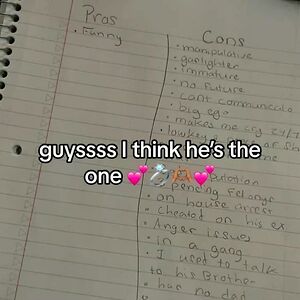 Pros
Cons
• Funny
• manipulative
• gaslighter
• immature
• no future
• cant communicate
• big ego
• makes me cry 24/7
• lowkey
guyssss I think he's the
one 💕💍🫶🏽💕
pending felonys
on house arrest
• Cheated on his ex
• Anger issues
• in a gang
• I used to talk
to his Brother
• has no dad